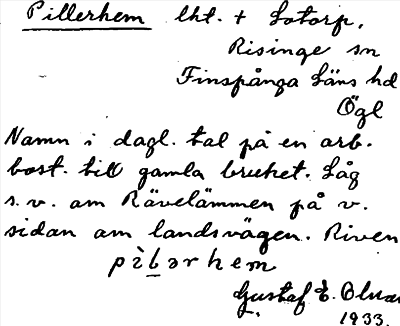 Pillerhem lht. t Lotorp,
Risinge sn
Finspånga Läns hd
Ögl
Namn i dagl. tal på en arb.
bost. till gamla bruket. Låg
s.v. om Rävelämmen på v.
sidan om landsvägen. Riven
pìlərhem
Gustaf E.
1933.